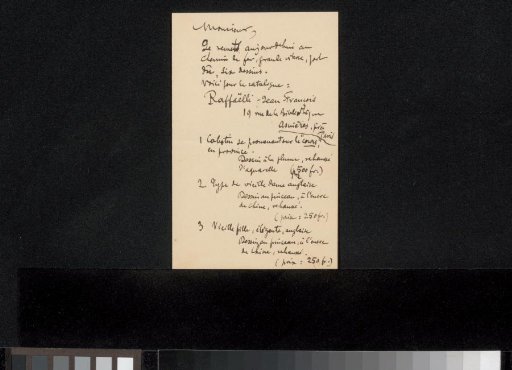 Monsieur,
Je remets aujourd'hui au
chemin de fer, grande vitesse, port
dû, six dessins.
Voici pour le catalogue :
Raffaëlli - Jean François
19 rue de la Bibliothèque
Asnières, près
Paris
1 Cabotin se promenant sur le cours,
en province.
Dessin à la plume, rehaussé
d'aquarelle (500 fr.)
2 Type de vieille dame anglaise
Dessin au pinceau, à l'encre
de chine, rehaussé.
(prix : 250 fr.)
3 Vieille fille, élégante, anglaise
Dessin au pinceau, à l'encre
de chine, rehaussé.
(prix : 250 fr.)